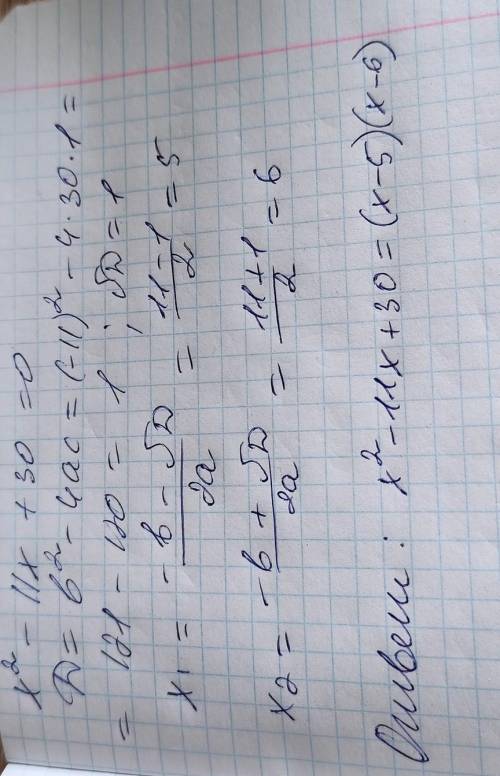 x² - 11x + 30 = 0
D = b² - 4ac = (-11)² - 4·30·1 =
= 121 - 120 = 1 ; √D = 1
x₁ = (-b - √D)/2a = (11 - 1)/2 = 5
x₂ = (-b + √D)/2a = (11 + 1)/2 = 6
Ответ: x² - 11x + 30 = (x - 5)(x - 6)